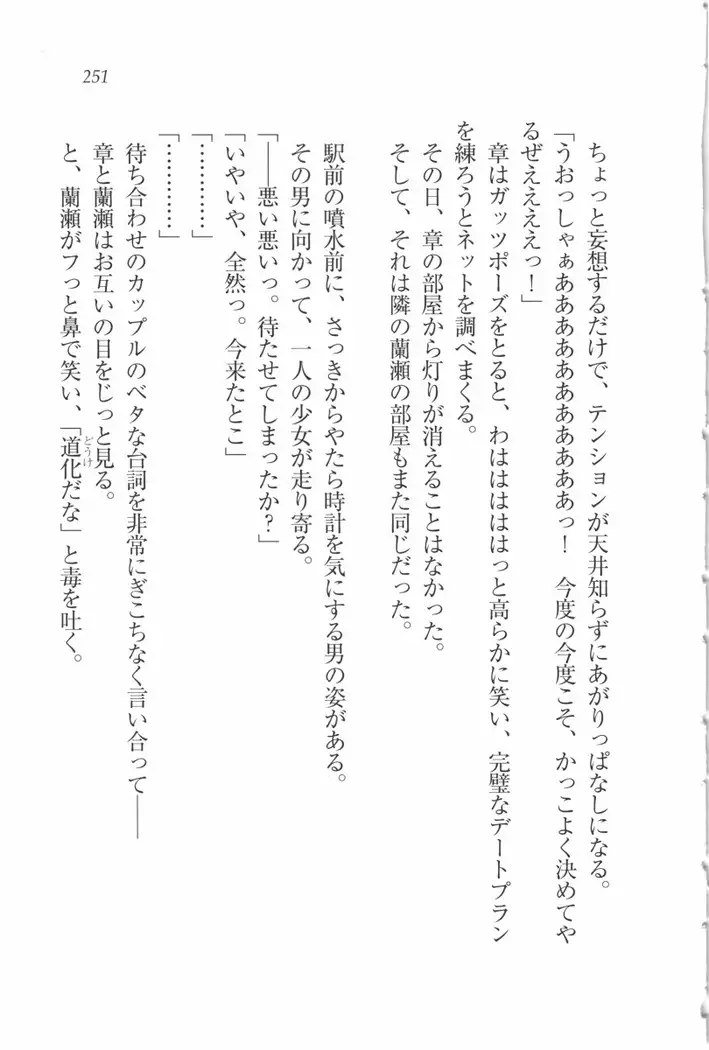 251
ちょっと妄想するだけで、テンションが天井知らずにあがりっぱなしになる。
「うおっしゃぁあああああああああああっ！　今度の今度こそ、かっこよく決めてや
るぜええええっ！」
章はガッツポーズをとると、わはははははっと高らかに笑い、完璧なデートプラン
を練ろうとネットを調べまくる。
その日、章の部屋から灯りが消えることはなかった。
そして、それは隣の蘭瀬の部屋もまた同じだった。
駅前の噴水前に、さっきからやたら時計を気にする男の姿がある。
その男に向かって、一人の少女が走り寄る。
「――悪い悪いっ。待たせてしまったか？」
「いやいや、全然っ。今来たとこ」
「…………」
「…………」
待ち合わせのカップルのベタな台詞を非常にぎこちなく言い合って――
章と蘭瀬はお互いの目をじっと見る。
と、蘭瀬がフっと鼻で笑い、「道化だな」と毒を吐く。
どうけ